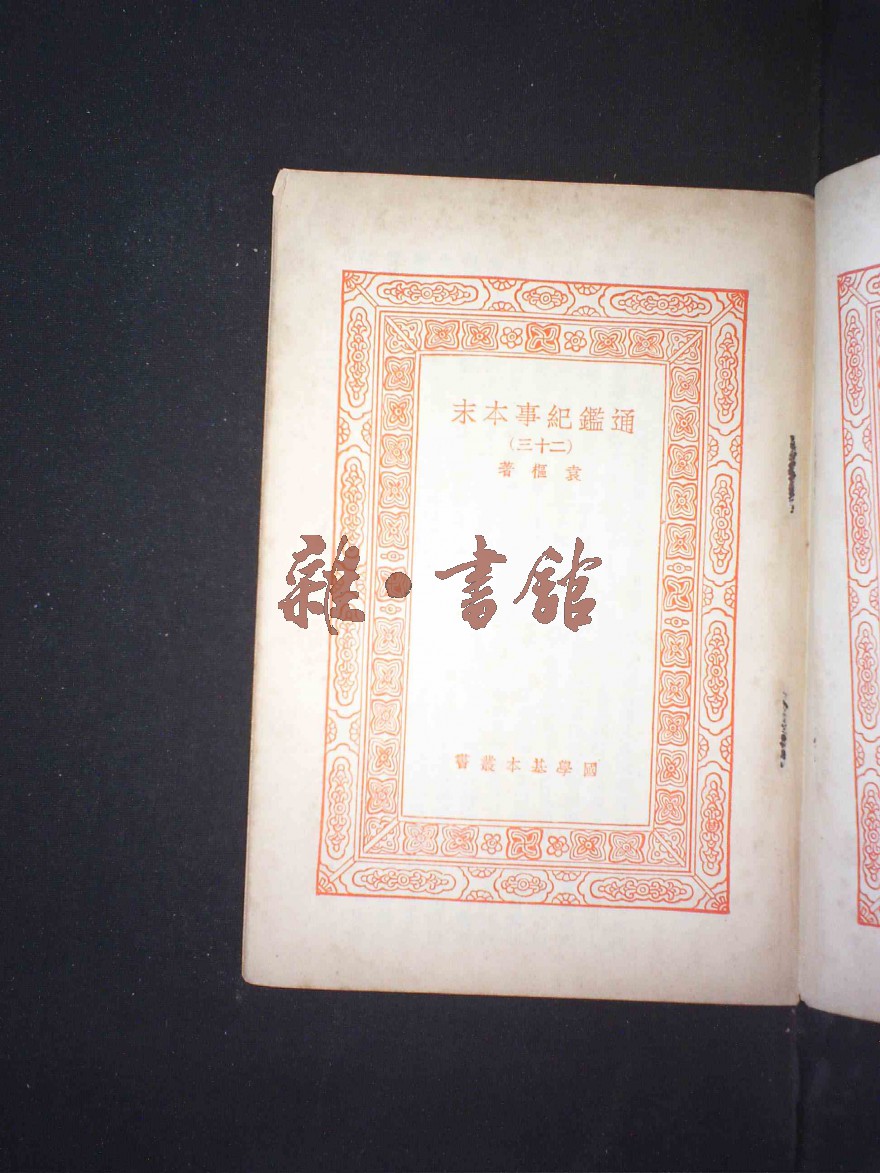 通鑑紀事本末
（二十三）
袁樞著
雜·書館
國學基本叢書